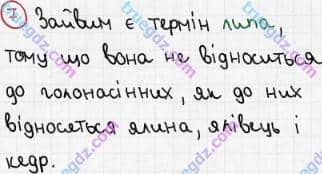 7 Зайвим є термін липа,
тому що вона не відноситься
до голонасінних, як до них
відносяться ялина, ялівець і
кедр.